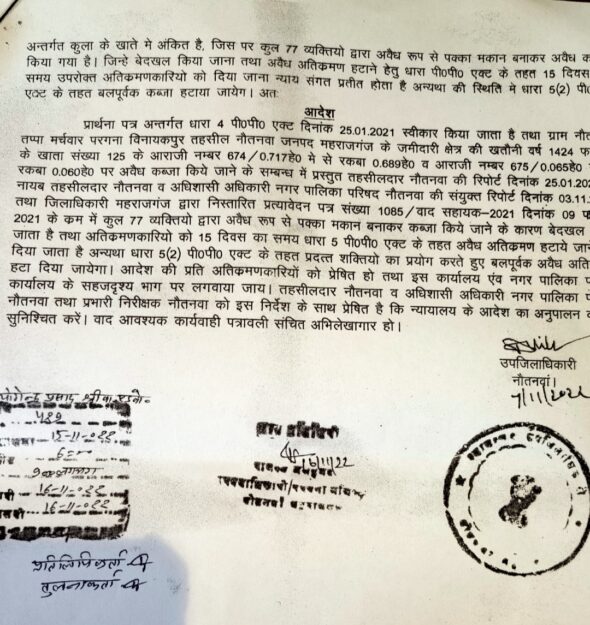 अन्तर्गत कुला के खाते मे अंकित है, जिस पर कुल 77 व्यक्तियो द्वारा अवैध रूप से पक्का मकान बनाकर अवैध क
किया गया है। जिन्हे बेदखल किया जाना तथा अवैध अतिक्रमण हटाने हेतु धारा पी0पी0 एक्ट के तहत 15 दिवस
समय उपरोक्त अतिक्रमणकारियो को दिया जाना न्याय संगत प्रतीत होता है अन्यथा की स्थिति मे धारा 5(2) पी0
एक्ट के तहत बलपूर्वक कब्जा हटाया जायेग। अतः
आदेश
प्रार्थना पत्र अन्तर्गत धारा 4 पी0पी0 एक्ट दिनांक 25.01.2021 स्वीकार किया जाता है तथा ग्राम नौत
तप्पा मर्चवार परगना विनायकपुर तहसील नौतनवा जनपद महराजगंज के जमीदारी क्षेत्र की खतौनी वर्ष 1424 फ
के खाता संख्या 125 के आराजी नम्बर 674/0.717हे0 मे से रकबा 0.689हे0 व आराजी नम्बर 675/0.065हे0
रकबा 0.060हे0 पर अवैध कब्जा किये जाने के सम्बन्ध में प्रस्तुत तहसीलदार नौतनवा की रिपोर्ट दिनांक 25.01.202
नायब तहसीलदार नौतनवा व अधिशासी अधिकारी नगर पालिका परिषद नौतनवा की संयुक्त रिपोर्ट दिनांक 03.11.
तथा जिलाधिकारी महराजगंज द्वारा निस्तारित प्रत्यावेदन पत्र संख्या 1085/वाद सहायक-2021 दिनांक 09 फ
2021 के कम में कुल 77 व्यक्तियों द्वारा अवैध रूप से पक्का मकान बनाकर कब्जा किये जाने के कारण बेदखल
जाता है तथा अतिकमणकारियों को 15 दिवस का समय धारा 5 पी0पी0 एक्ट के तहत अवैध अतिक्रमण हटाये जाने
दिया जाता है अन्यथा धारा 5(2) पी0पी0 एक्ट के तहत प्रदत्त शक्तियो का प्रयोग करते हुए बलपूर्वक अवैध अति
हटा दिया जायेगा। आदेश की प्रति अतिकमणकारियों को प्रेषित हो तथा इस कार्यालय एंव नगर पालिका प
कार्यालय के सहजदृश्य भाग पर लगवाया जाय। तहसीलदार नौतनवा व अधिशासी अधिकारी नगर पालिका प
नौतनवा तथा प्रभारी निरीक्षक नौतनवा को इस निर्देश के साथ प्रेषित है कि न्यायालय के आदेश का अनुपालन
सुनिश्चित करें। वाद आवश्यक कार्यवाही पत्रावली संचित अभिलेखागार हो।
उपजिलाधिकारी
नौतनवां।
15-11-022
16/11/22
16-11-022
16-11-022
प्रतिलिपिकर्ता
तुलनाकर्ता